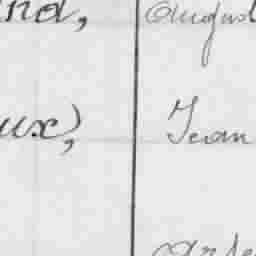 nd, August
ux, Jean